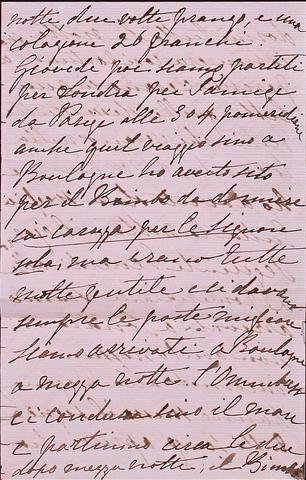 notte, due volte pranzo, e una
colazione 26 franchi.
Giovedi poi siamo partiti
per Londra pei Tamigi
da Parigi alle 3 o 4 pomeridiane
anche quel viaggio sino a
Boulogne ho avuto sito
per il Bimbo da dormire
in carozza per le Signore
sola, ma erano tutte
molto gentile e ci davano
sempre le poste migliori
siamo arrivati a Boulogne
a mezza notte l'Omnibus
ci condusse sino il mare
e partimmo circa le due
dopo mezza notte; il Bimbo